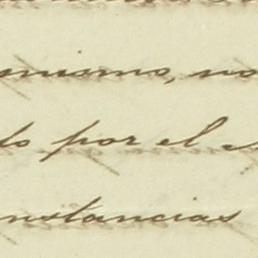 mismo, no
do por el
nstancias